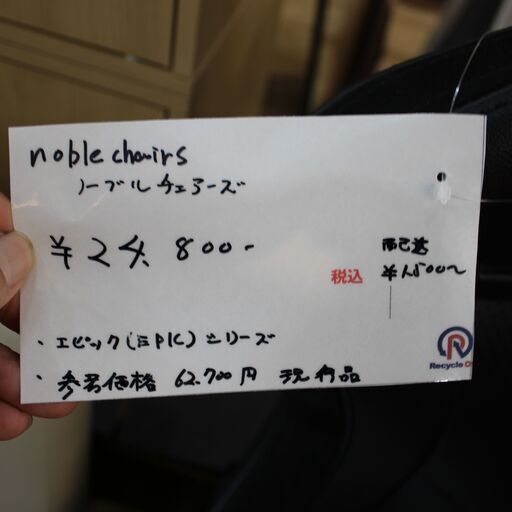 noble chairs
ノーブルチェアーズ
¥24,800-
税込
配送
¥1,500〜
・エピック(EPIC)シリーズ
・参考価格 62,700円 現行品
Recycle